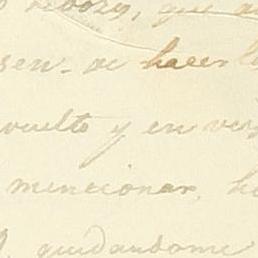 que
sen- de hacer l
vuelto y en ver
mencionar, h
quedandome